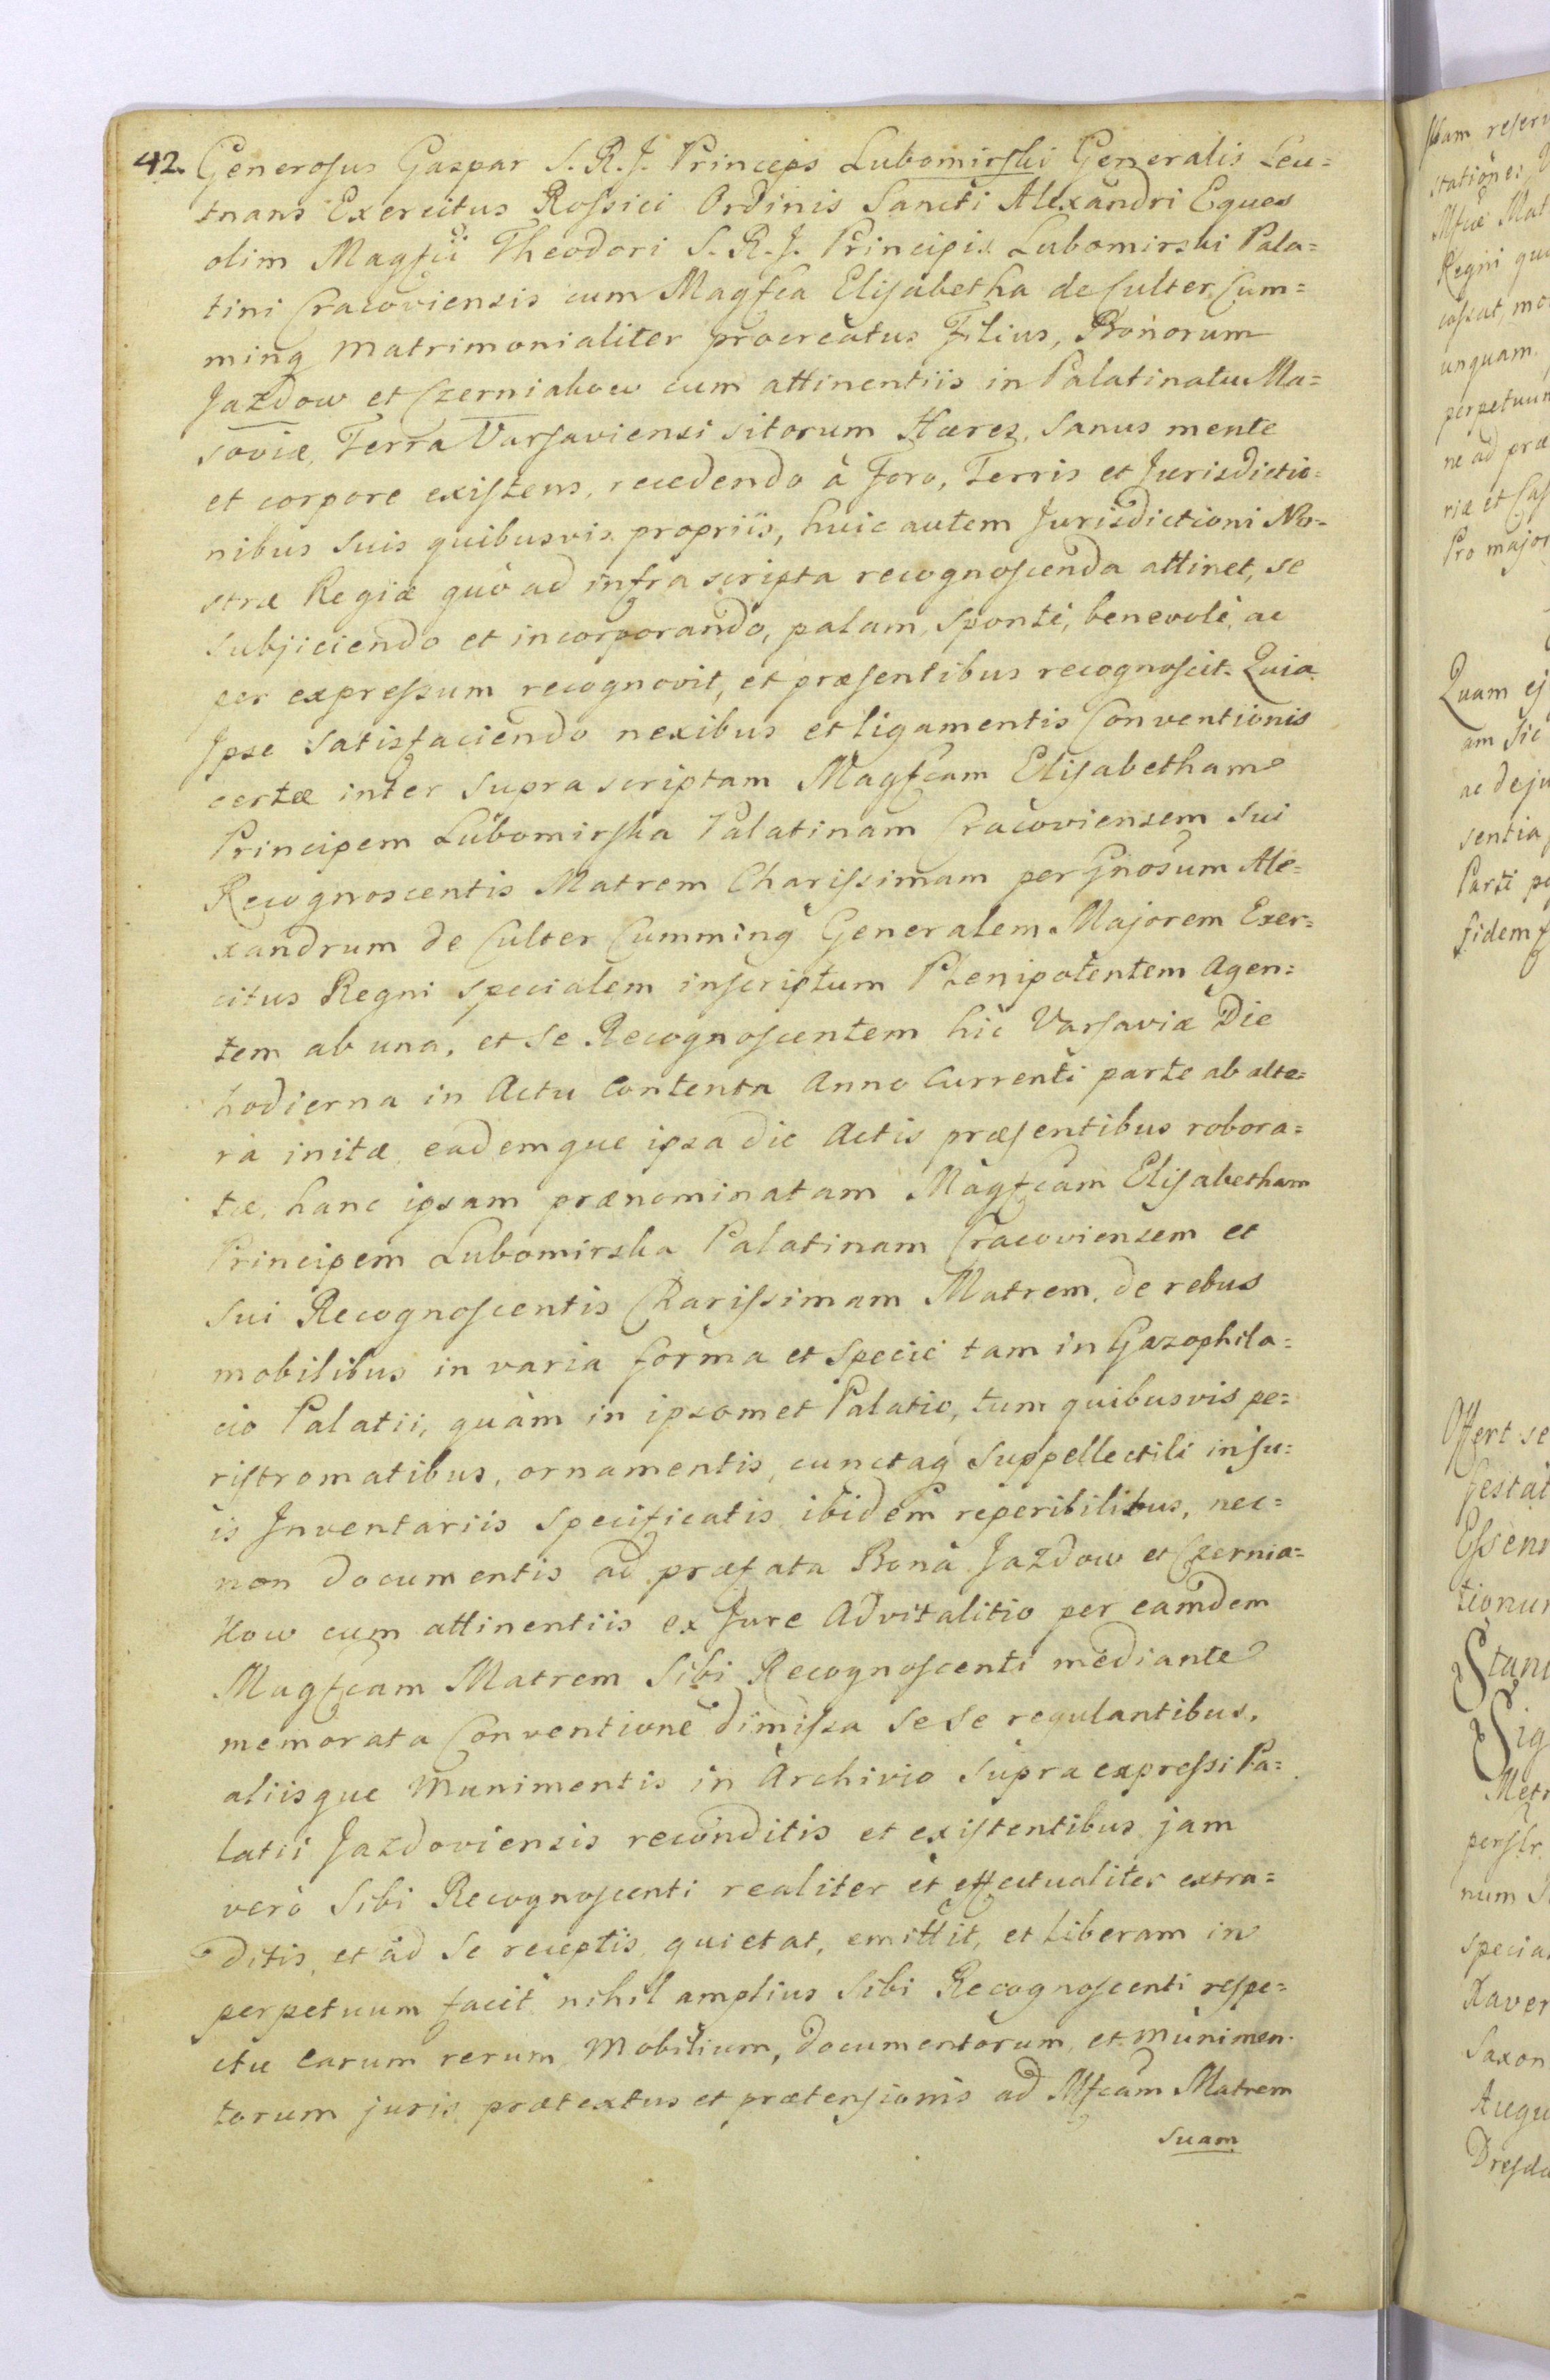 42. Generosus Gaspar S. R. J. Princeps Lubomirski Generalis Leu=
tnans Exercitus Rossici Ordinis Sancti Alexandri Eques
olim Magfii Theodori S. R. J. Principis Lubomirski Pala=
tini Cracoviensis cum Magfca Elisabetha de Culter Cum=
ming matrimonialiter procreatus Filius, Bonorum
Jazdow et Czerniakow cum attinentiis in Palatinatu Ma=
soviæ, Terra Varsaviensi sitorum Hæres, Sanus mente
et corpore existens, recedendo à Foro, Terris et Jurisdictio=
nibus suis quibusvis propriis, huic autem Jurisdictioni No=
stræ Regiæ quò ad infra scripta recognoscenda attinet, se
subjiciendo et incorporando, palam, sponte, benevolè, ac
per expressum recognovit, et præsentibus recognoscit. Quia
Ipse satisfaciendo nexibus et ligamentis Conventionis
certæ inter supra scriptam Magfcam Elisabetham
Principem Lubomirska Palatinam Cracoviensem sui
Recognoscentis Matrem Charissimam per Gnosum Ale=
xandrum de Culter Cumming Generalem Majorem Exer=
citus Regni specialem inscriptum Plenipotentem agen=
tem ab una, et se Recognoscentem hic Varsaviæ Die
hodierna in Actu Contenta Anno Currenti parte ab alte=
rà initæ, eademque ipsa die Actis præsentibus robora=
tæ, hanc ipsam prænominatam Magfcam Elisabetham
Principem Lubomirska Palatinam Cracoviensem et
sui Recognoscentis Charissimam Matrem, de rebus
mobilibus in varia forma et specie tam in Gazophila=
cio Palatii, quàm in ipsomet Palatio, tum quibusvis pe=
ristromatibus, ornamentis, cunctaq suppellectili in su=
is Inventariis specificatis ibidem reperibilibus, nec=
non documentis ad præfata Bona Jazdow et Czernia=
kow cum attinentiis ex Jure Advitalitio per eamdem
Magfcam Matrem Sibi Recognoscenti mediante
memorata Conventione dimissa sese regulantibus,
aliisque Munimentis in Archivio supra expressi Pa=
latii Jazdoviensis reconditis et existentibus jam
verò Sibi Recognoscenti realiter et effectualiter extra=
ditis, et ad se receptis, quietat, emittit, et liberam in
perpetuum facit nihil amplius Sibi Recognoscenti respe=
ctu earum rerum, Mobilium, documentorum, et munimen=
torum juris prætextus et prætensionis ad Mfcam Matrem
suam